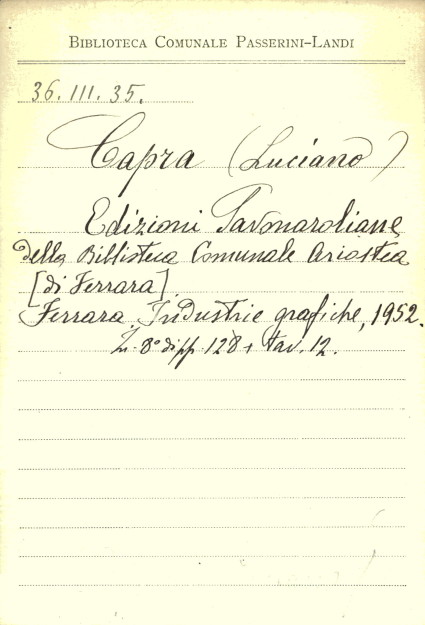 BIBLIOTECA COMUNALE PASSERINI-LANDI
36. III. 35.
Capra (Luciano)
Edizioni Savonaroliane
della Biblioteca Comunale Ariostea
[di Ferrara].
Ferrara. Industrie grafiche, 1952.
In 8° di pp. 128 + tav. 12.